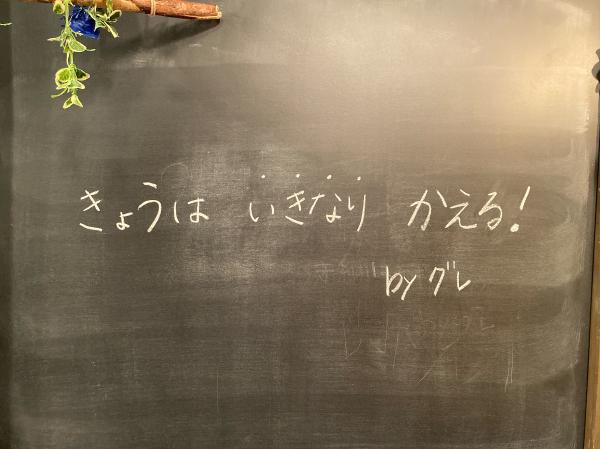 きょうは いきなり かえる!
by グレ